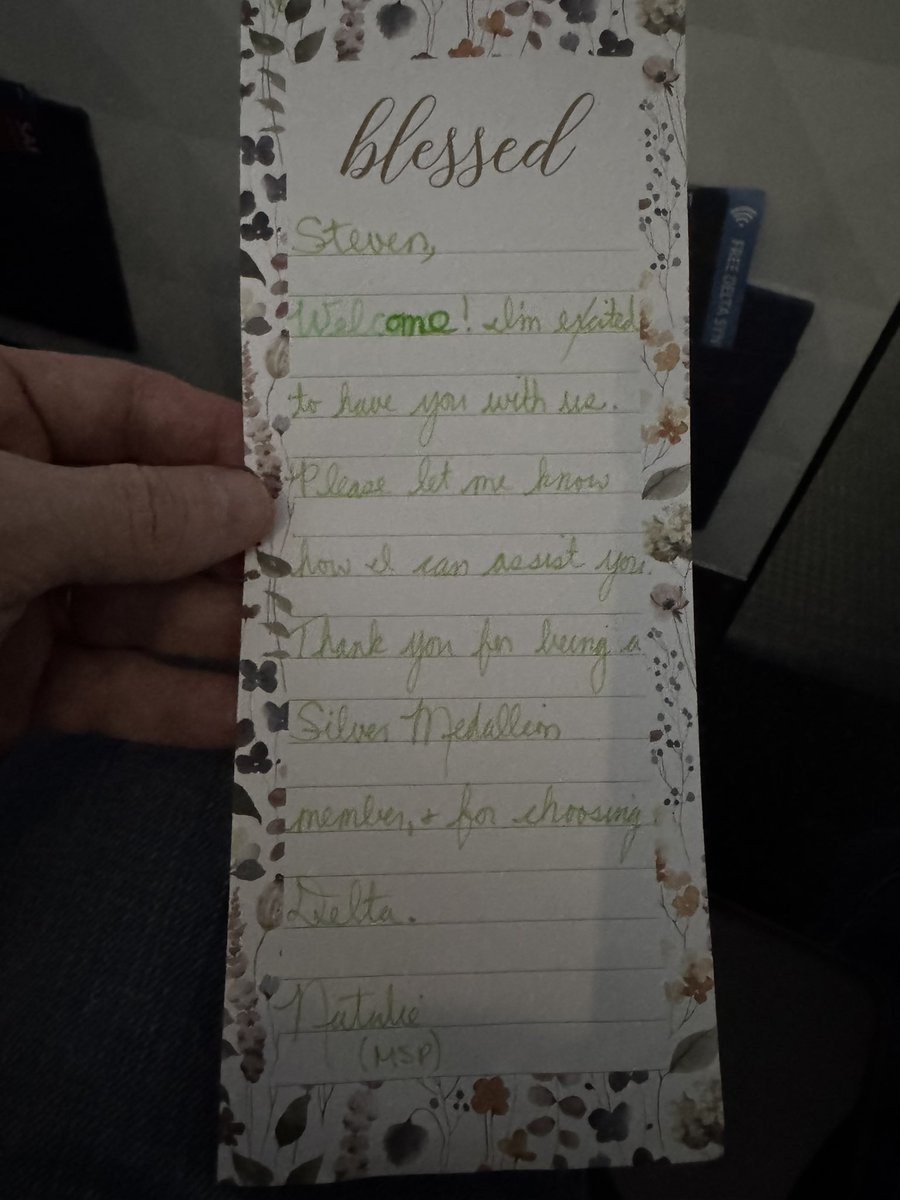 blessed
Steven,
Welcome! I'm excited
to have you with us.
Please let me know
how I can assist you.
Thank you for being a
Silver Medallion
member, + for choosing
Delta.
Natalie
(MSP)
FREE DELTA SYNC